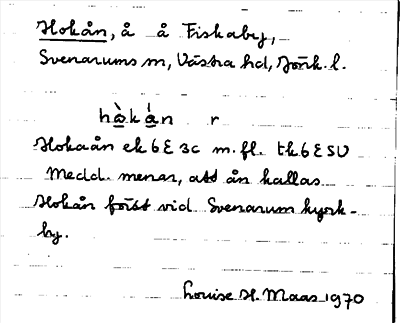 Hokån, å å Fiskaby,
Svenarums sn, Västra hd, Jönk. l.
hòkán r
Hokaån ek 6E 3c m.fl. tk 6E SV
Medd. menar, att ån kallas
Hokån först vid Svenarum kyrk-
by.
Louise H. Maas 1970